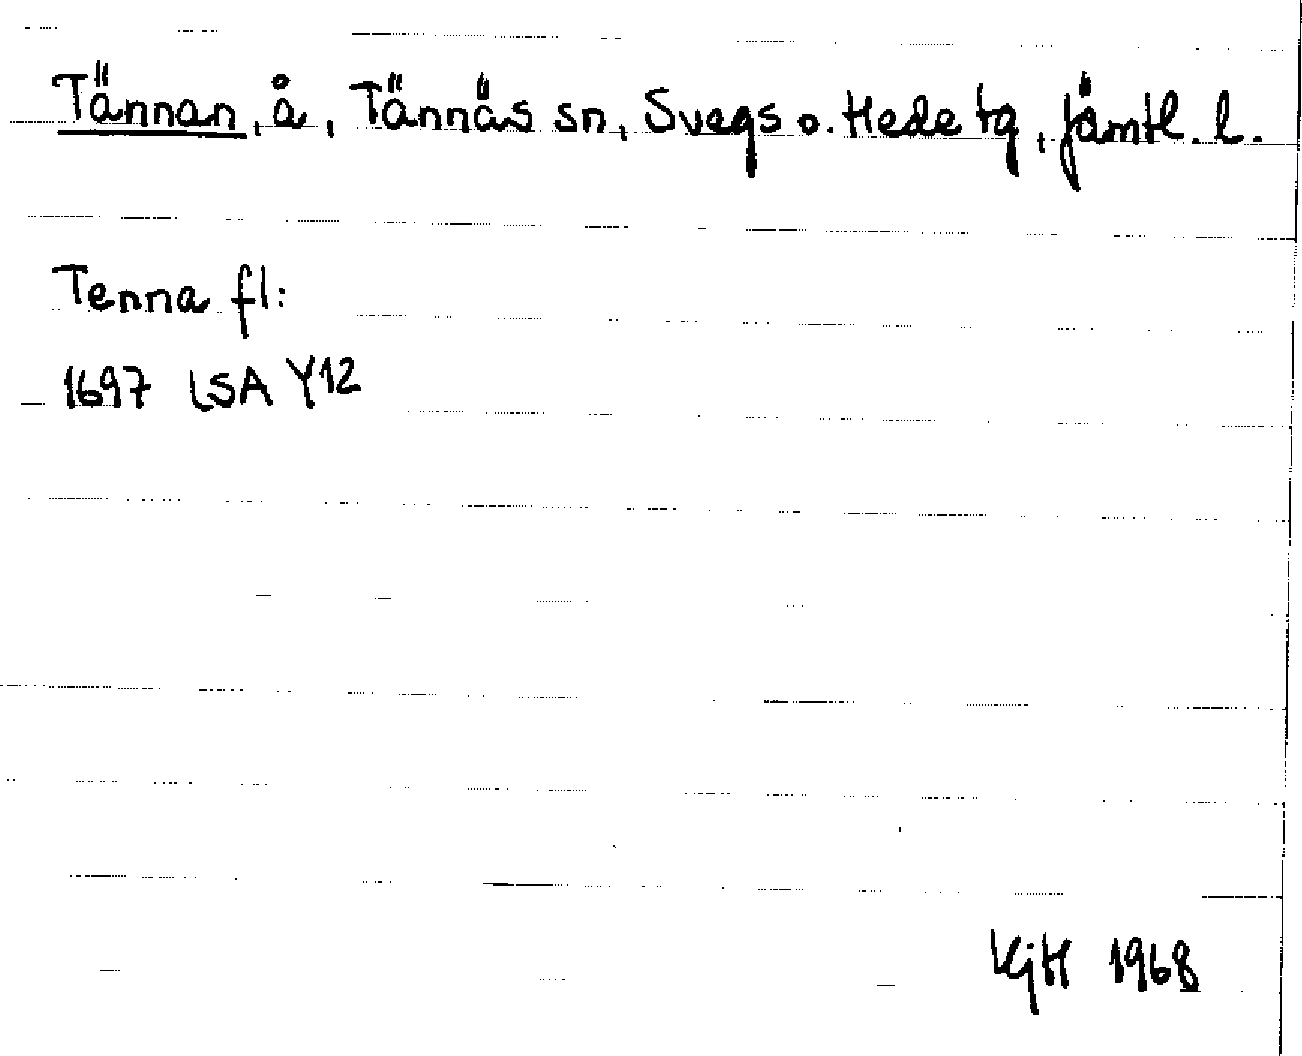 Tännan, å, Tännäs sn, Svegs o. Hede tg, Jämtl. l.
Tenna fl:
1697 LSA Y12
KjH 1968